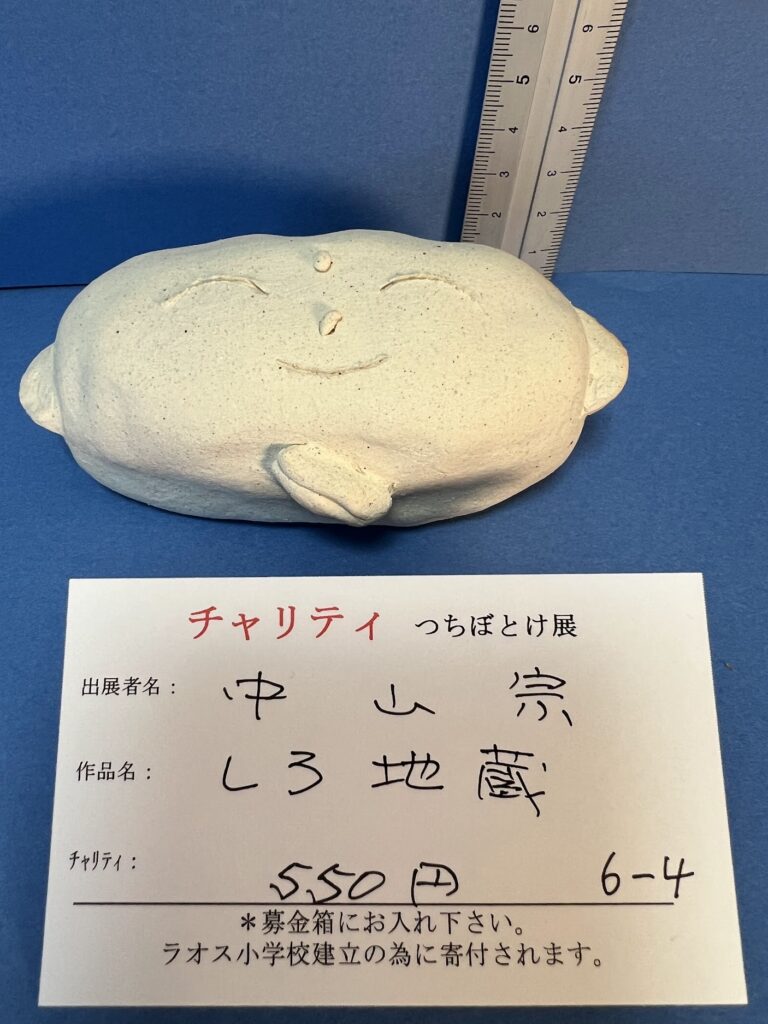 6 6
5 5
4 4
3 3
2 2
チャリティ つちぼとけ展
出展者名： 中山宗
作品名： しろ地蔵
ﾁｬﾘﾃｨ： 550円 6-4
＊募金箱にお入れ下さい。
ラオス小学校建立の為に寄付されます。